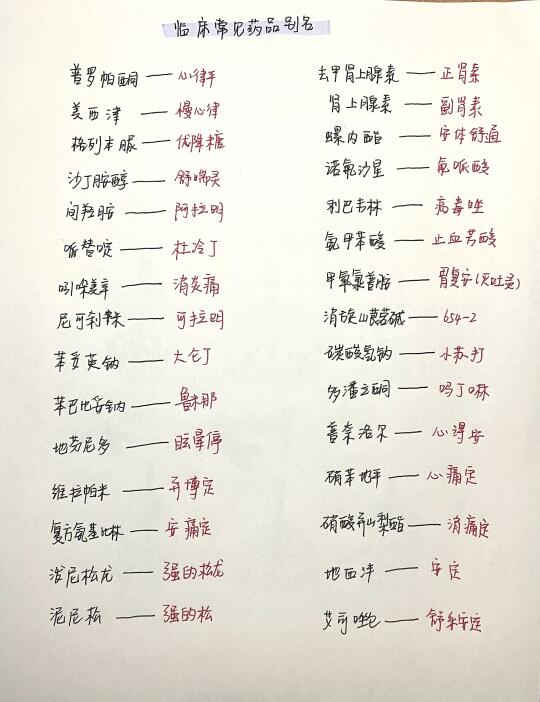 临床常见药品别名
普罗帕酮 —— 心律平
美西津 —— 慢心律
格列本脲 —— 优降糖
沙丁胺醇 —— 舒喘灵
间羟胺 —— 阿拉明
哌替啶 —— 杜冷丁
吲哚美辛 —— 消炎痛
尼可刹米 —— 可拉明
苯妥英钠 —— 大仑丁
苯巴比妥钠 —— 鲁米那
地芬尼多 —— 眩晕停
维拉帕米 —— 异博定
复方氨基比林 —— 安痛定
泼尼松龙 —— 强的松龙
泥尼松 —— 强的松
去甲肾上腺素 —— 正肾素
肾上腺素 —— 副肾素
螺内酯 —— 安体舒通
诺氟沙星 —— 氟哌酸
利巴韦林 —— 病毒唑
氨甲苯酸 —— 止血芳酸
甲氧氯普胺 —— 胃复安(灭吐灵)
消旋山莨菪碱 —— 654-2
碳酸氢钠 —— 小苏打
多潘立酮 —— 吗丁啉
普奈洛尔 —— 心得安
硝苯地平 —— 心痛定
硝酸异山梨酯 —— 消痛定
地西泮 —— 安定
艾司唑仑 —— 舒乐安定